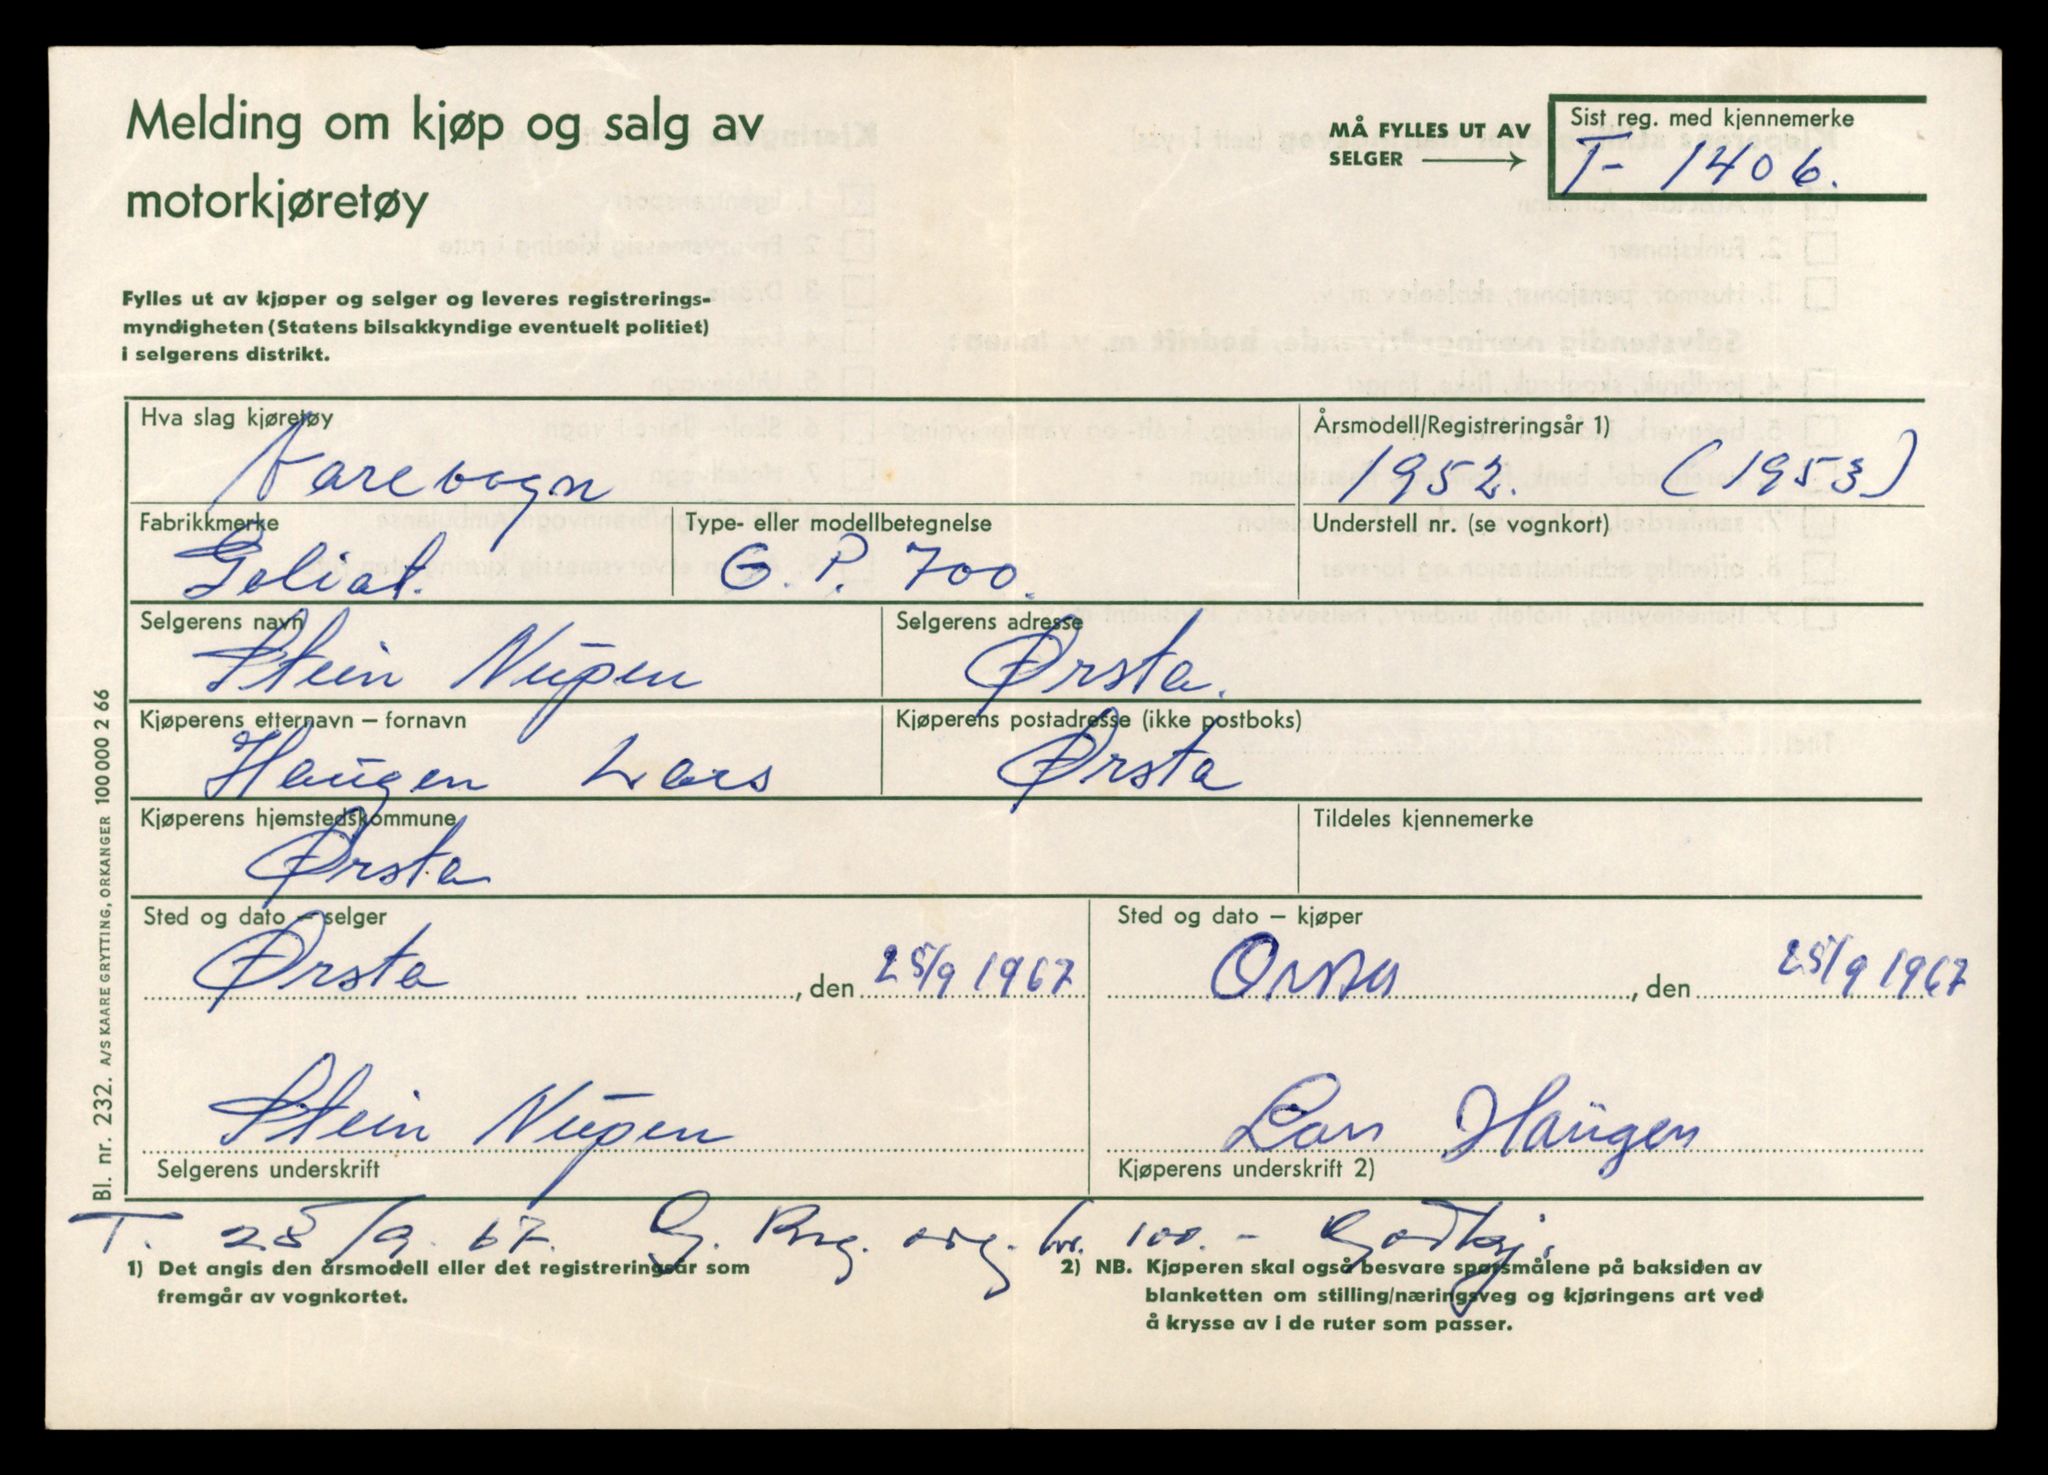 Melding om kjøp og salg av
motorkjøretøy
MÅ FYLLES UT AV
SELGER
Sist reg. med kjennemerke
T- 1406.
Fylles ut av kjøper og selger og leveres registrerings-
myndigheten (Statens bilsakkyndige eventuelt politiet)
i selgerens distrikt.
Hva slag kjøretøy
Varevogn
Årsmodell/Registreringsår 1)
1952. (1953)
Fabrikkmerke
Goliat.
Type- eller modellbetegnelse
G. P. 700.
Understell nr. (se vognkort)
Selgerens navn
Stein Nupen
Selgerens adresse
Ørsta.
Kjøperens etternavn – fornavn
Haugen Lars
Kjøperens postadresse (ikke postboks)
Ørsta
Kjøperens hjemstedskommune
Ørsta
Tildeles kjennemerke
Sted og dato – selger
Ørsta, den 25/9 1967
Sted og dato – kjøper
Ørsta, den 25/9 1967
Stein Nupen
Selgerens underskrift
Lars Haugen
Kjøperens underskrift 2)
T. 25/9. 67. Reg. avg. kr. 100.- Godkj.
1) Det angis den årsmodell eller det registreringsår som
fremgår av vognkortet.
2) NB. Kjøperen skal også besvare spørsmålene på baksiden av
blanketten om stilling/næringsveg og kjøringens art ved
å krysse av i de ruter som passer.
Bl. nr. 232. A/S KAARE GRYTTING, ORKANGER 100 000 2 66